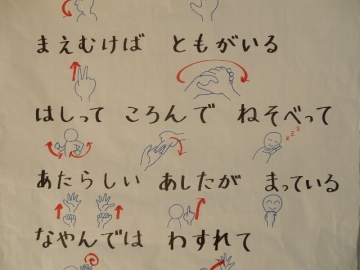 まえむけば ともがいる
はしって ころんで ねそべって
あたらしい あしたが まっている
なやんでは わすれて